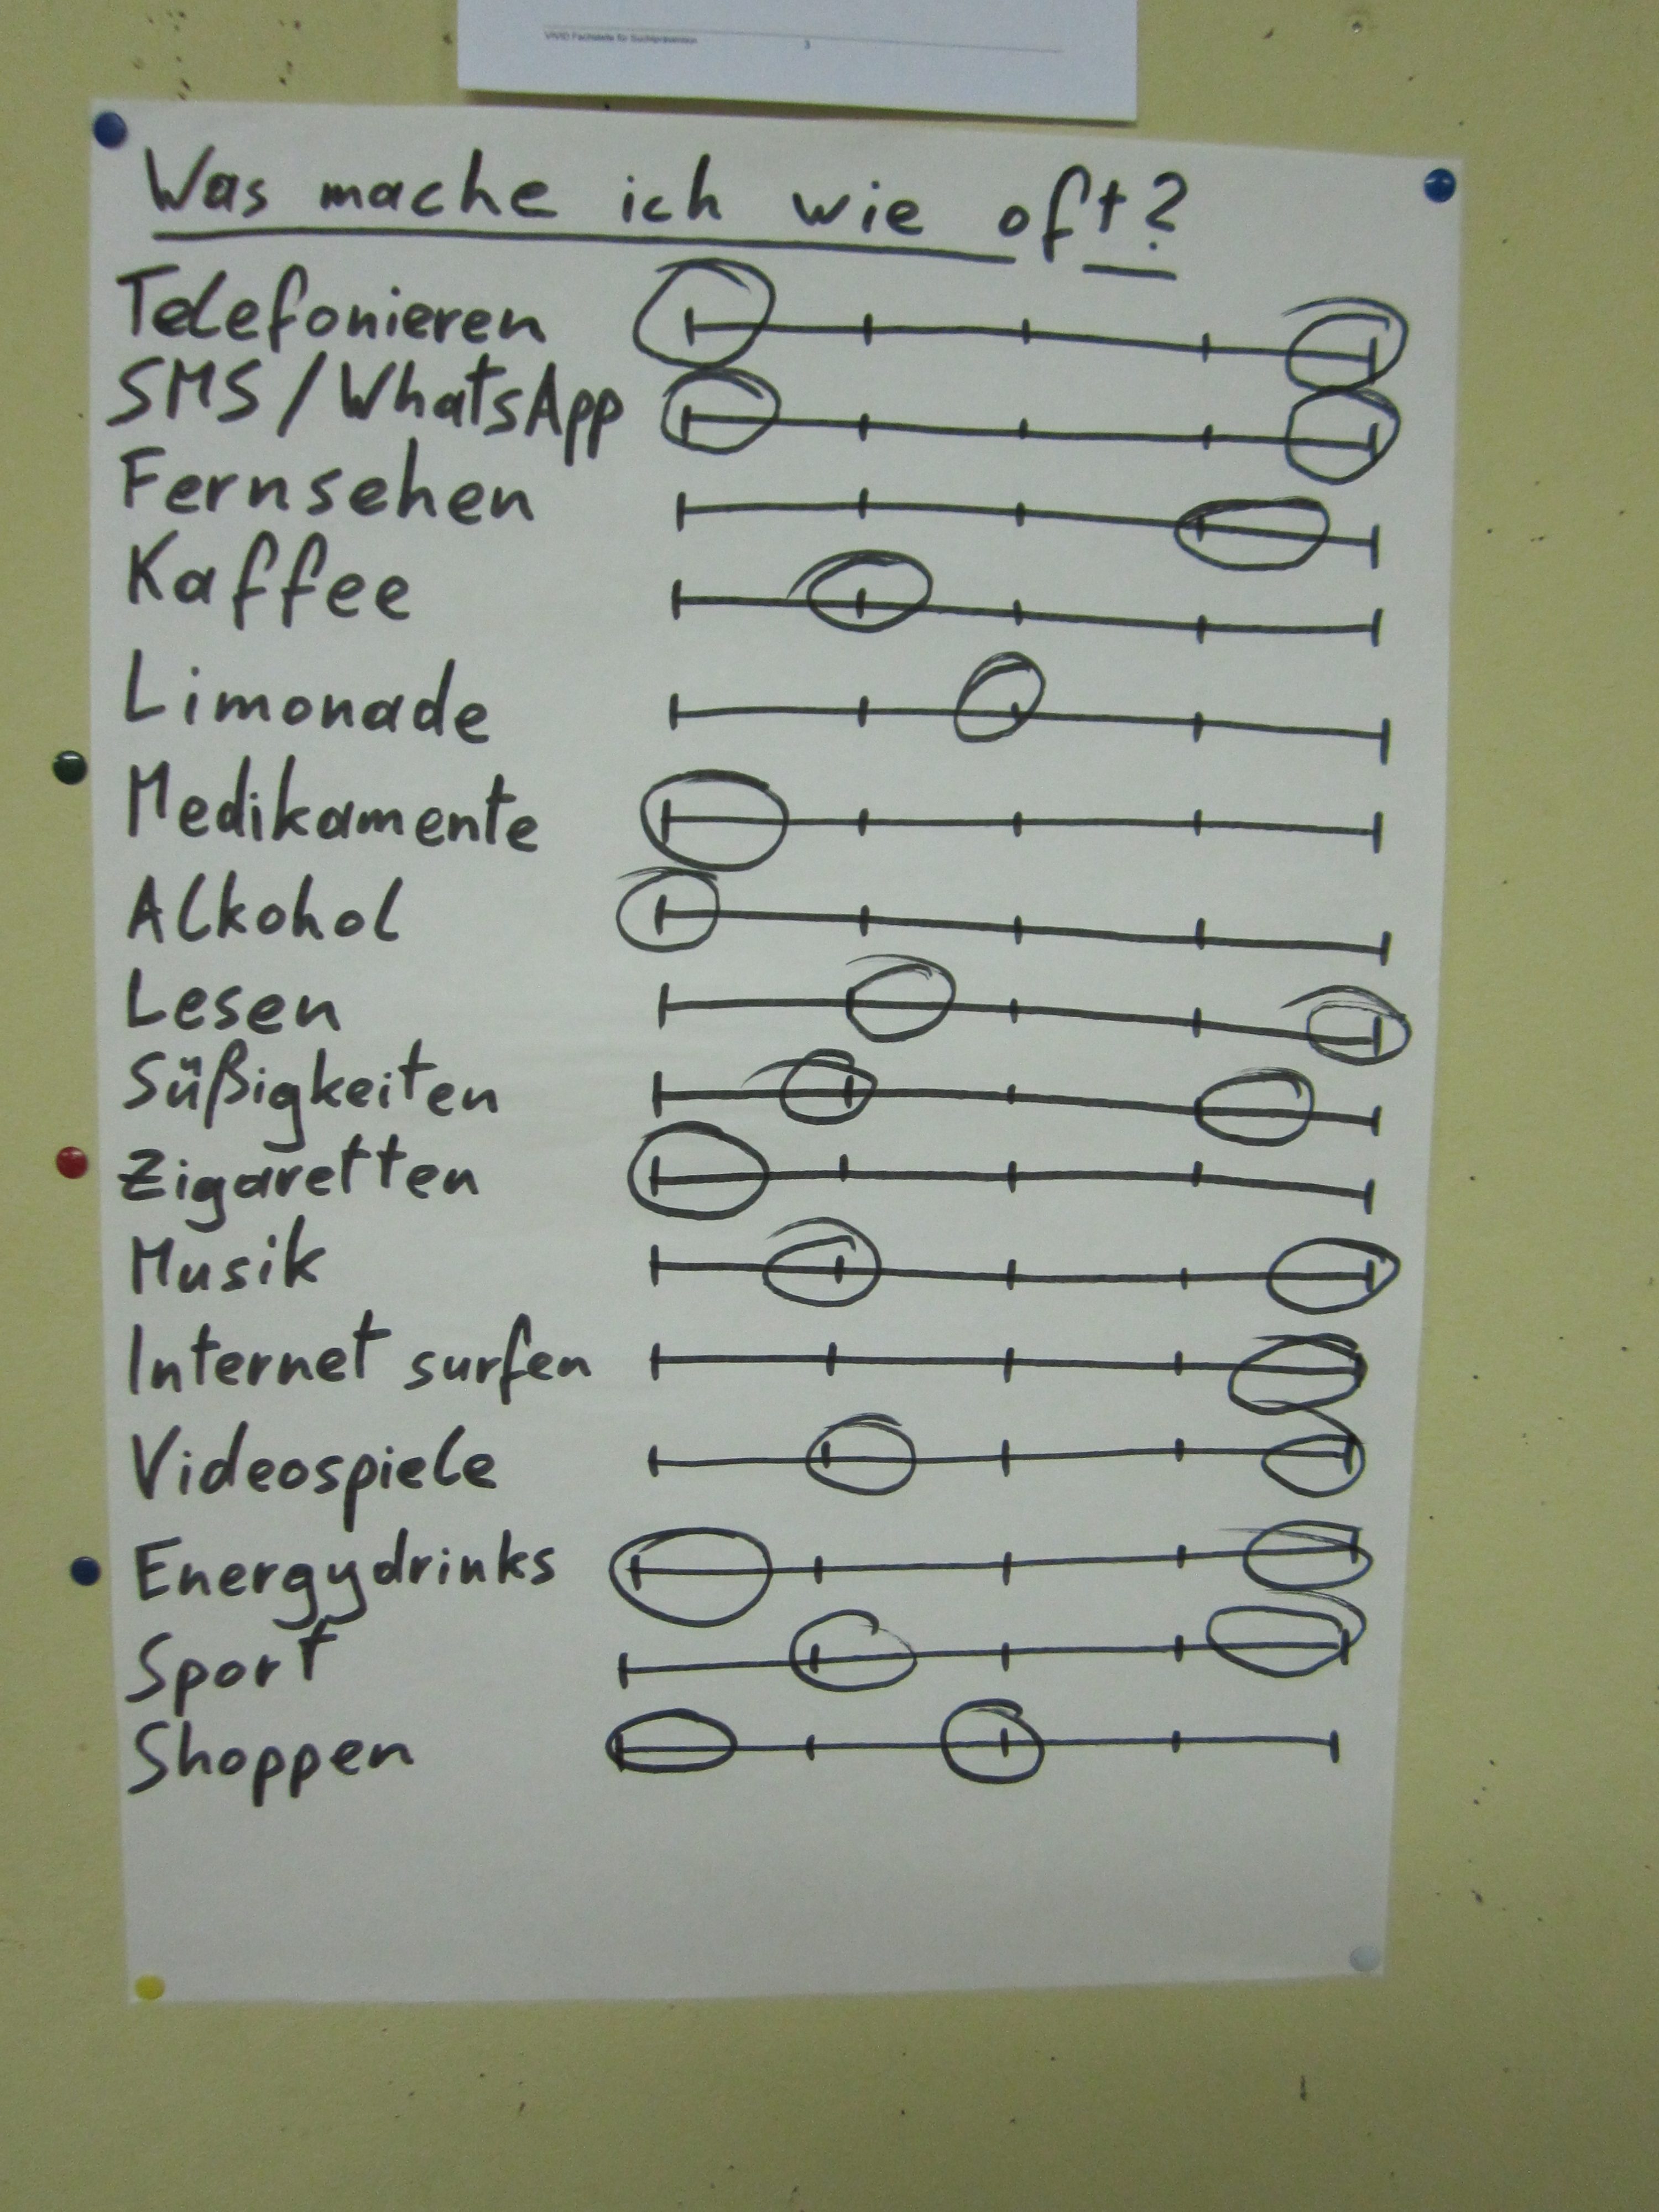 VIVID Fachstelle für Suchtprävention 3
Was mache ich wie oft?
Telefonieren
SMS/WhatsApp
Fernsehen
Kaffee
Limonade
Medikamente
Alkohol
Lesen
Süßigkeiten
Zigaretten
Musik
Internet surfen
Videospiele
Energydrinks
Sport
Shoppen